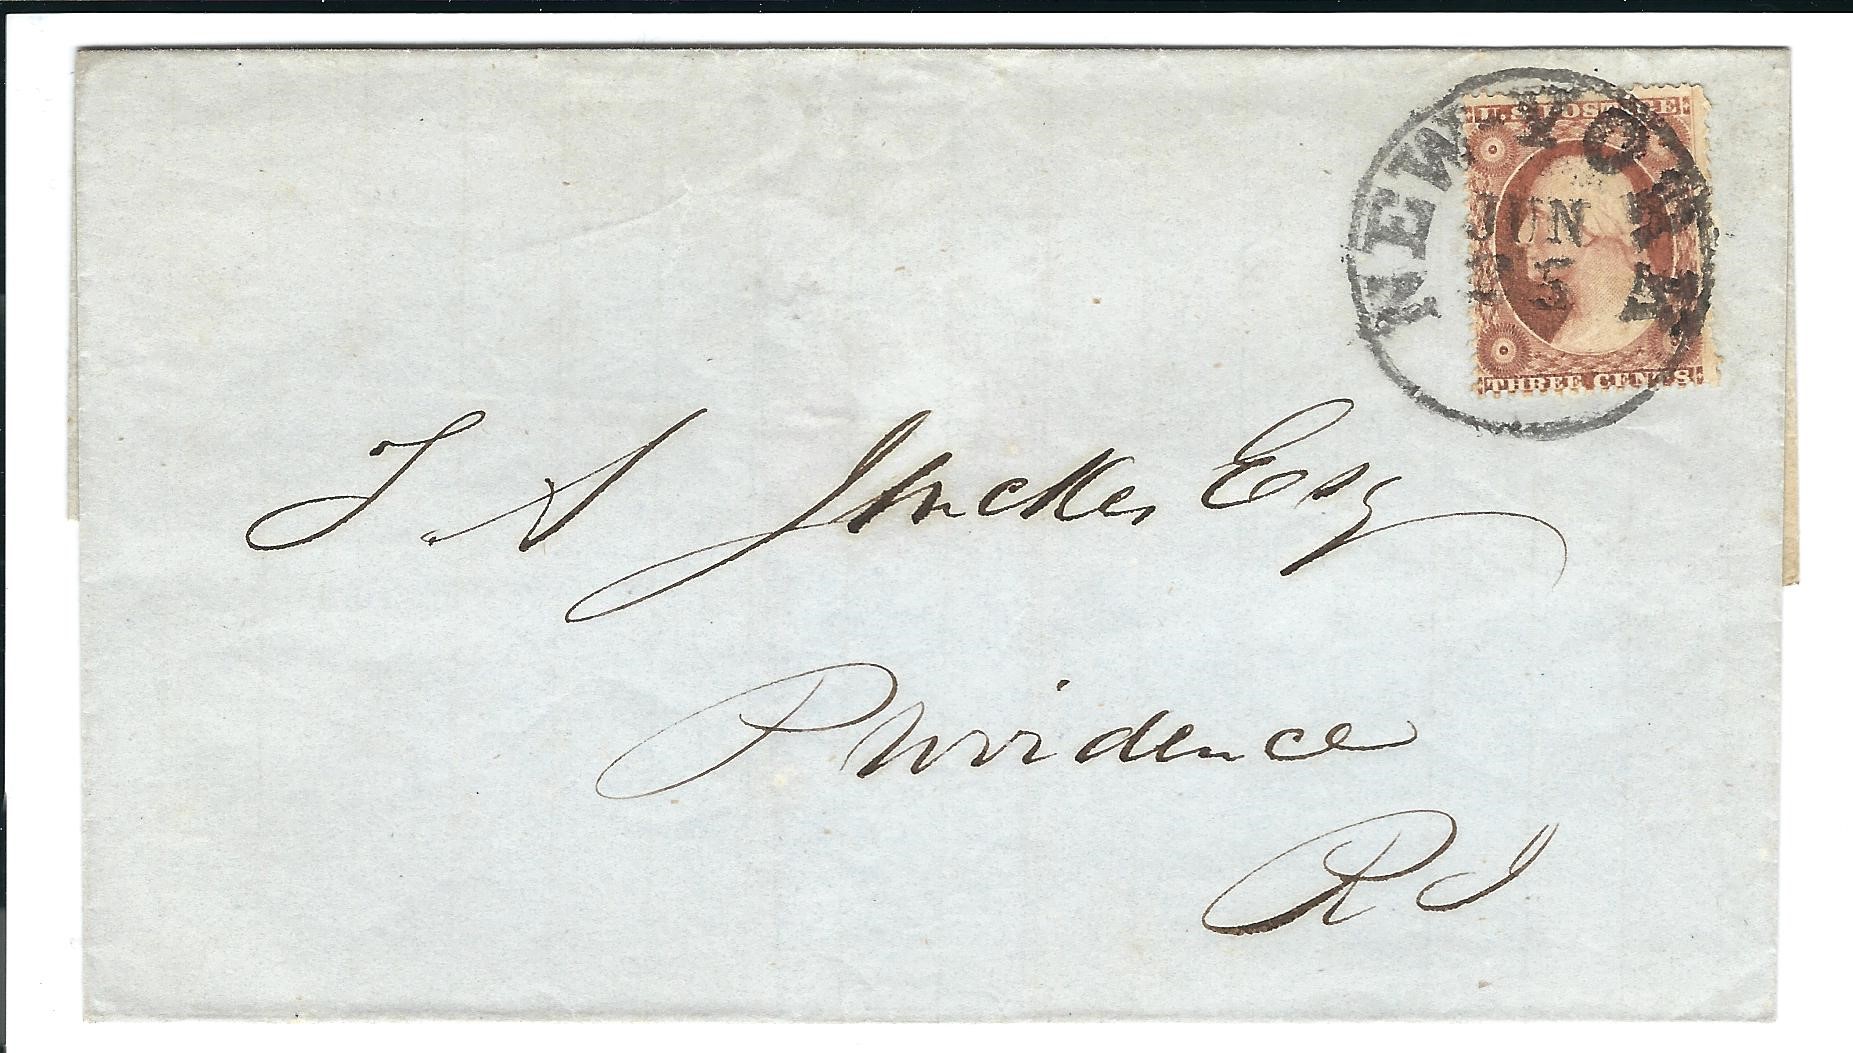 U.S. POSTAGE
NEW-YORK
JUN
25
THREE CENTS
T. A. Jenckes Esq
Providence
R I